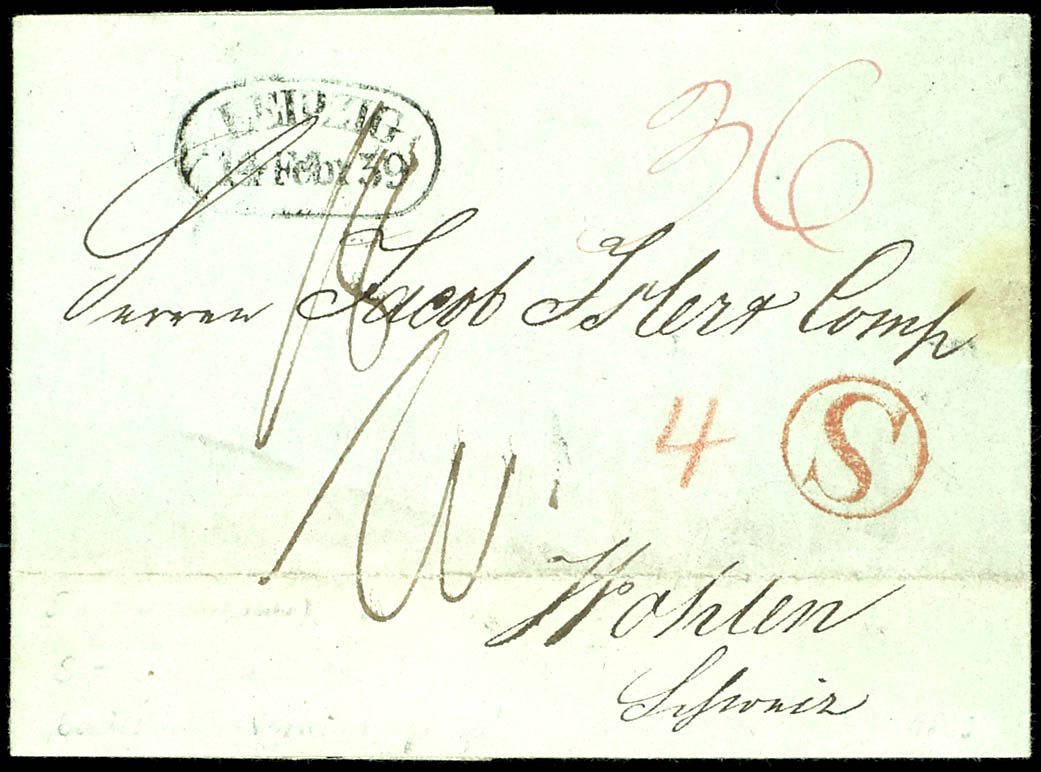 LEIPZIG
14 Febr 39
36
Herren Jacob Isler & Comp
4 S
Wohlen
Schweiz